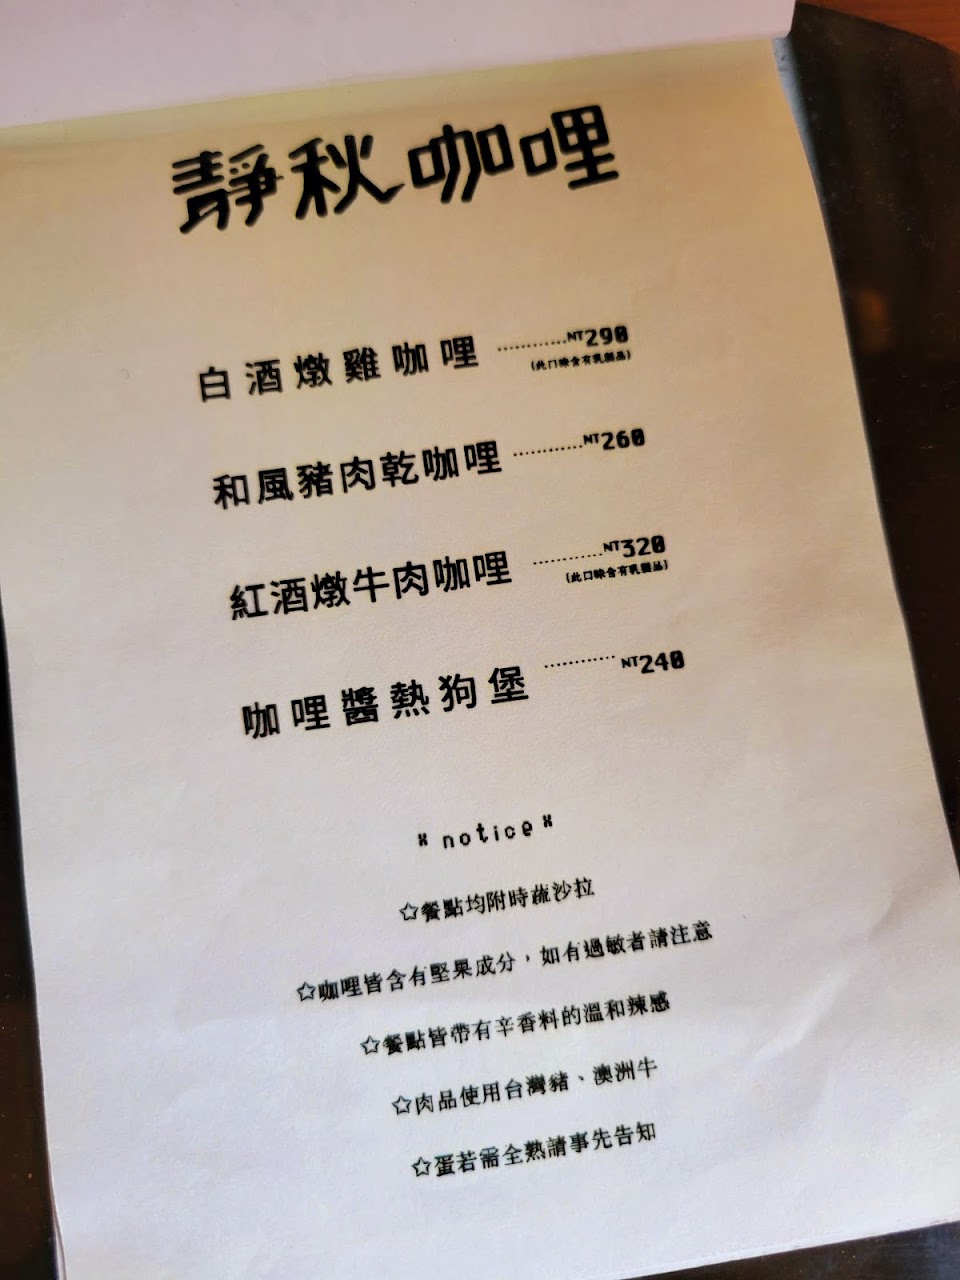 靜秋咖哩
白酒燉雞咖哩 ............NT290
(此口味含有乳製品)
和風豬肉乾咖哩 ............NT260
紅酒燉牛肉咖哩 ............NT320
(此口味含有乳製品)
咖哩醬熱狗堡 ............NT240
*notice*
☆餐點均附時蔬沙拉
☆咖哩皆含有堅果成分，如有過敏者請注意
☆餐點皆帶有辛香料的溫和辣感
☆肉品使用台灣豬、澳洲牛
☆蛋若需全熟請事先告知